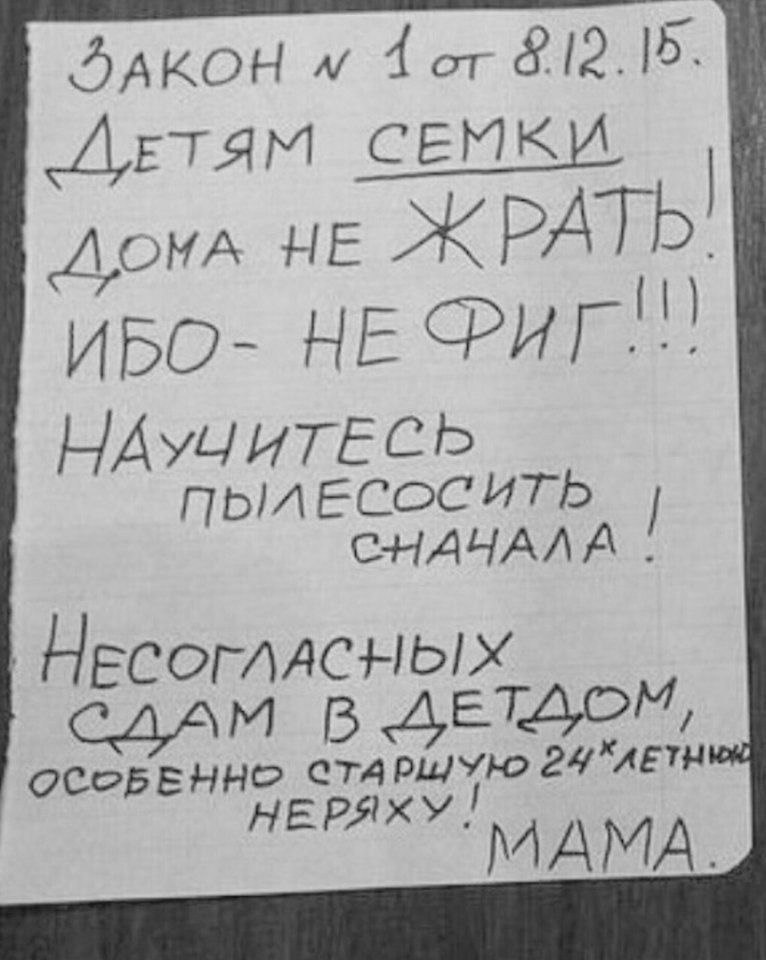 ЗАКОН N 1 от 8.12.15.
ДЕТЯМ СЕМКИ
ДОМА НЕ ЖРАТЬ!
ИБО - НЕ ФИГ!!!
НАУЧИТЕСЬ
ПЫЛЕСОСИТЬ
СНАЧАЛА!
НЕСОГЛАСНЫХ
СДАМ В ДЕТДОМ,
ОСОБЕННО СТАРШУЮ 24х ЛЕТНЮЮ
НЕРЯХУ!
МАМА.